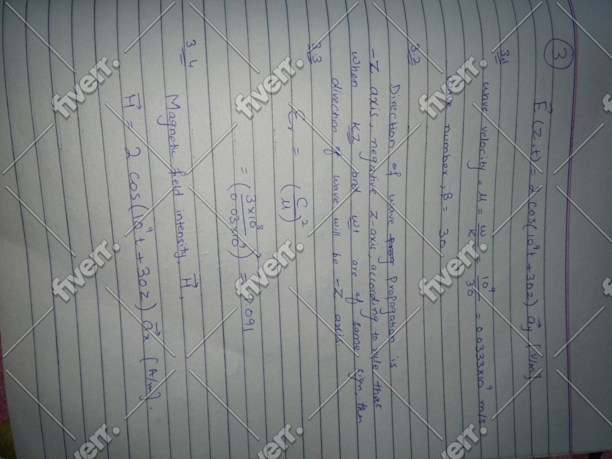 ③
E⃗(z,t) = 2 cos(10⁹t + 30z) a⃗y [V/m]
3.1
wave velocity, μ = w/k = 10⁹/30 = 0.0333x10⁹ m/s
number, β = 30
3.2
Direction of wave Propogation is
-Z axis, negative Z axis, according to rule that
when KZ and wt are of same sign, then
direction of wave will be -Z axis
3.3
εr = (c/μ)²
= (3x10⁸/0.03x10⁹)² = .091
3.4
Magnetic field intensity, H⃗,
H⃗ = 2 cos(10⁹t + 30z) a⃗x [A/m].
fiverr.
fiverr.
fiverr.
fiverr.
fiverr.
fiverr.
fiverr.
fiverr.
fiverr.